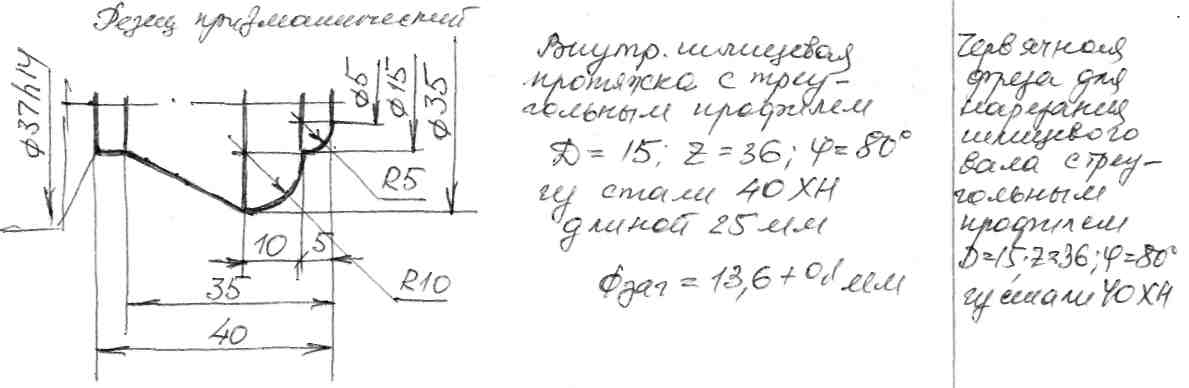 Резец призматический
Ф37h14
Ф5
Ф15
Ф35
R5
10
5
R10
35
40
Внутр. шлицевая
протяжка с треу-
гольным профилем
D = 15; Z = 36; φ = 80°
из стали 40ХН
длиной 25 мм
Фзаг = 13,6 + 0,1 мм
Червячная
фреза для
нарезания
шлицевого
вала с треу-
гольным
профилем
D=15·Z=36; φ=80°
из стали 40ХН